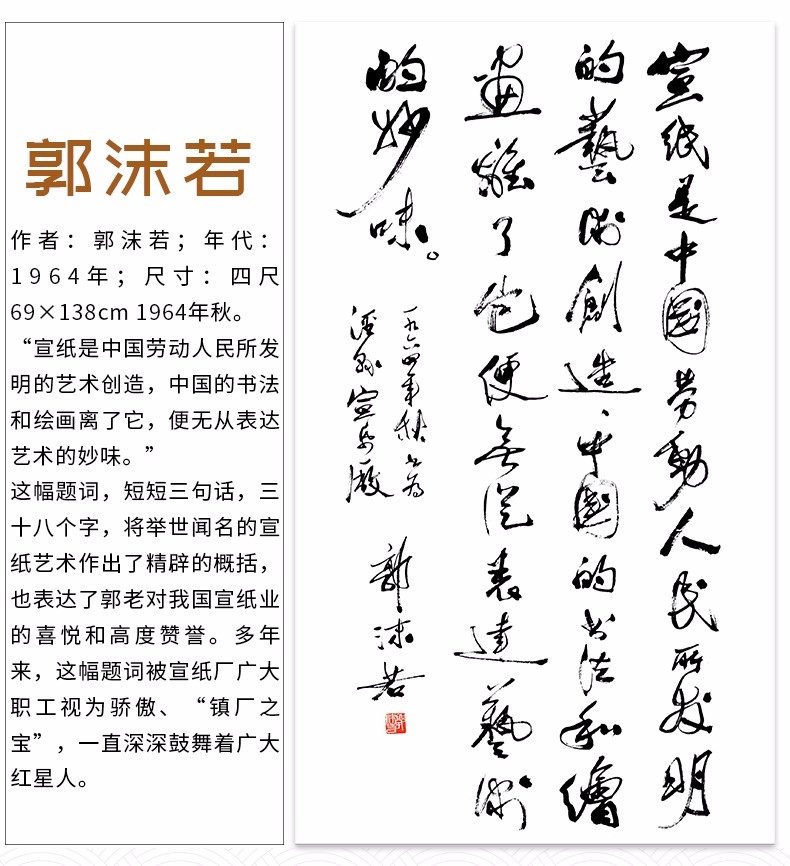 郭沫若
作者：郭沫若；年代：
1964年；尺寸：四尺
69×138cm 1964年秋。
“宣纸是中国劳动人民所发
明的艺术创造，中国的书法
和绘画离了它，便无从表达
艺术的妙味。”
这幅题词，短短三句话，三
十八个字，将举世闻名的宣
纸艺术作出了精辟的概括，
也表达了郭老对我国宣纸业
的喜悦和高度赞誉。多年
来，这幅题词被宣纸厂广大
职工视为骄傲、“镇厂之
宝”，一直深深鼓舞着广大
红星人。
宣纸是中国劳動人民所发明
的藝術創造、中國的书法和繪
畫離了它便無從表達藝術
的妙味。
一九六四年秋书为
泾县宣纸厰
郭沫若